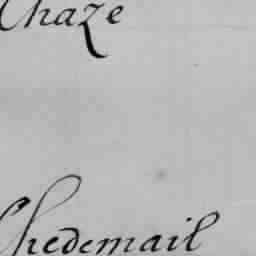 Chaze
Chedemail